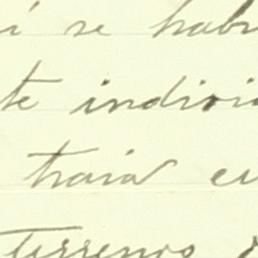 í se habr
te indivi
traia cu
terrenos